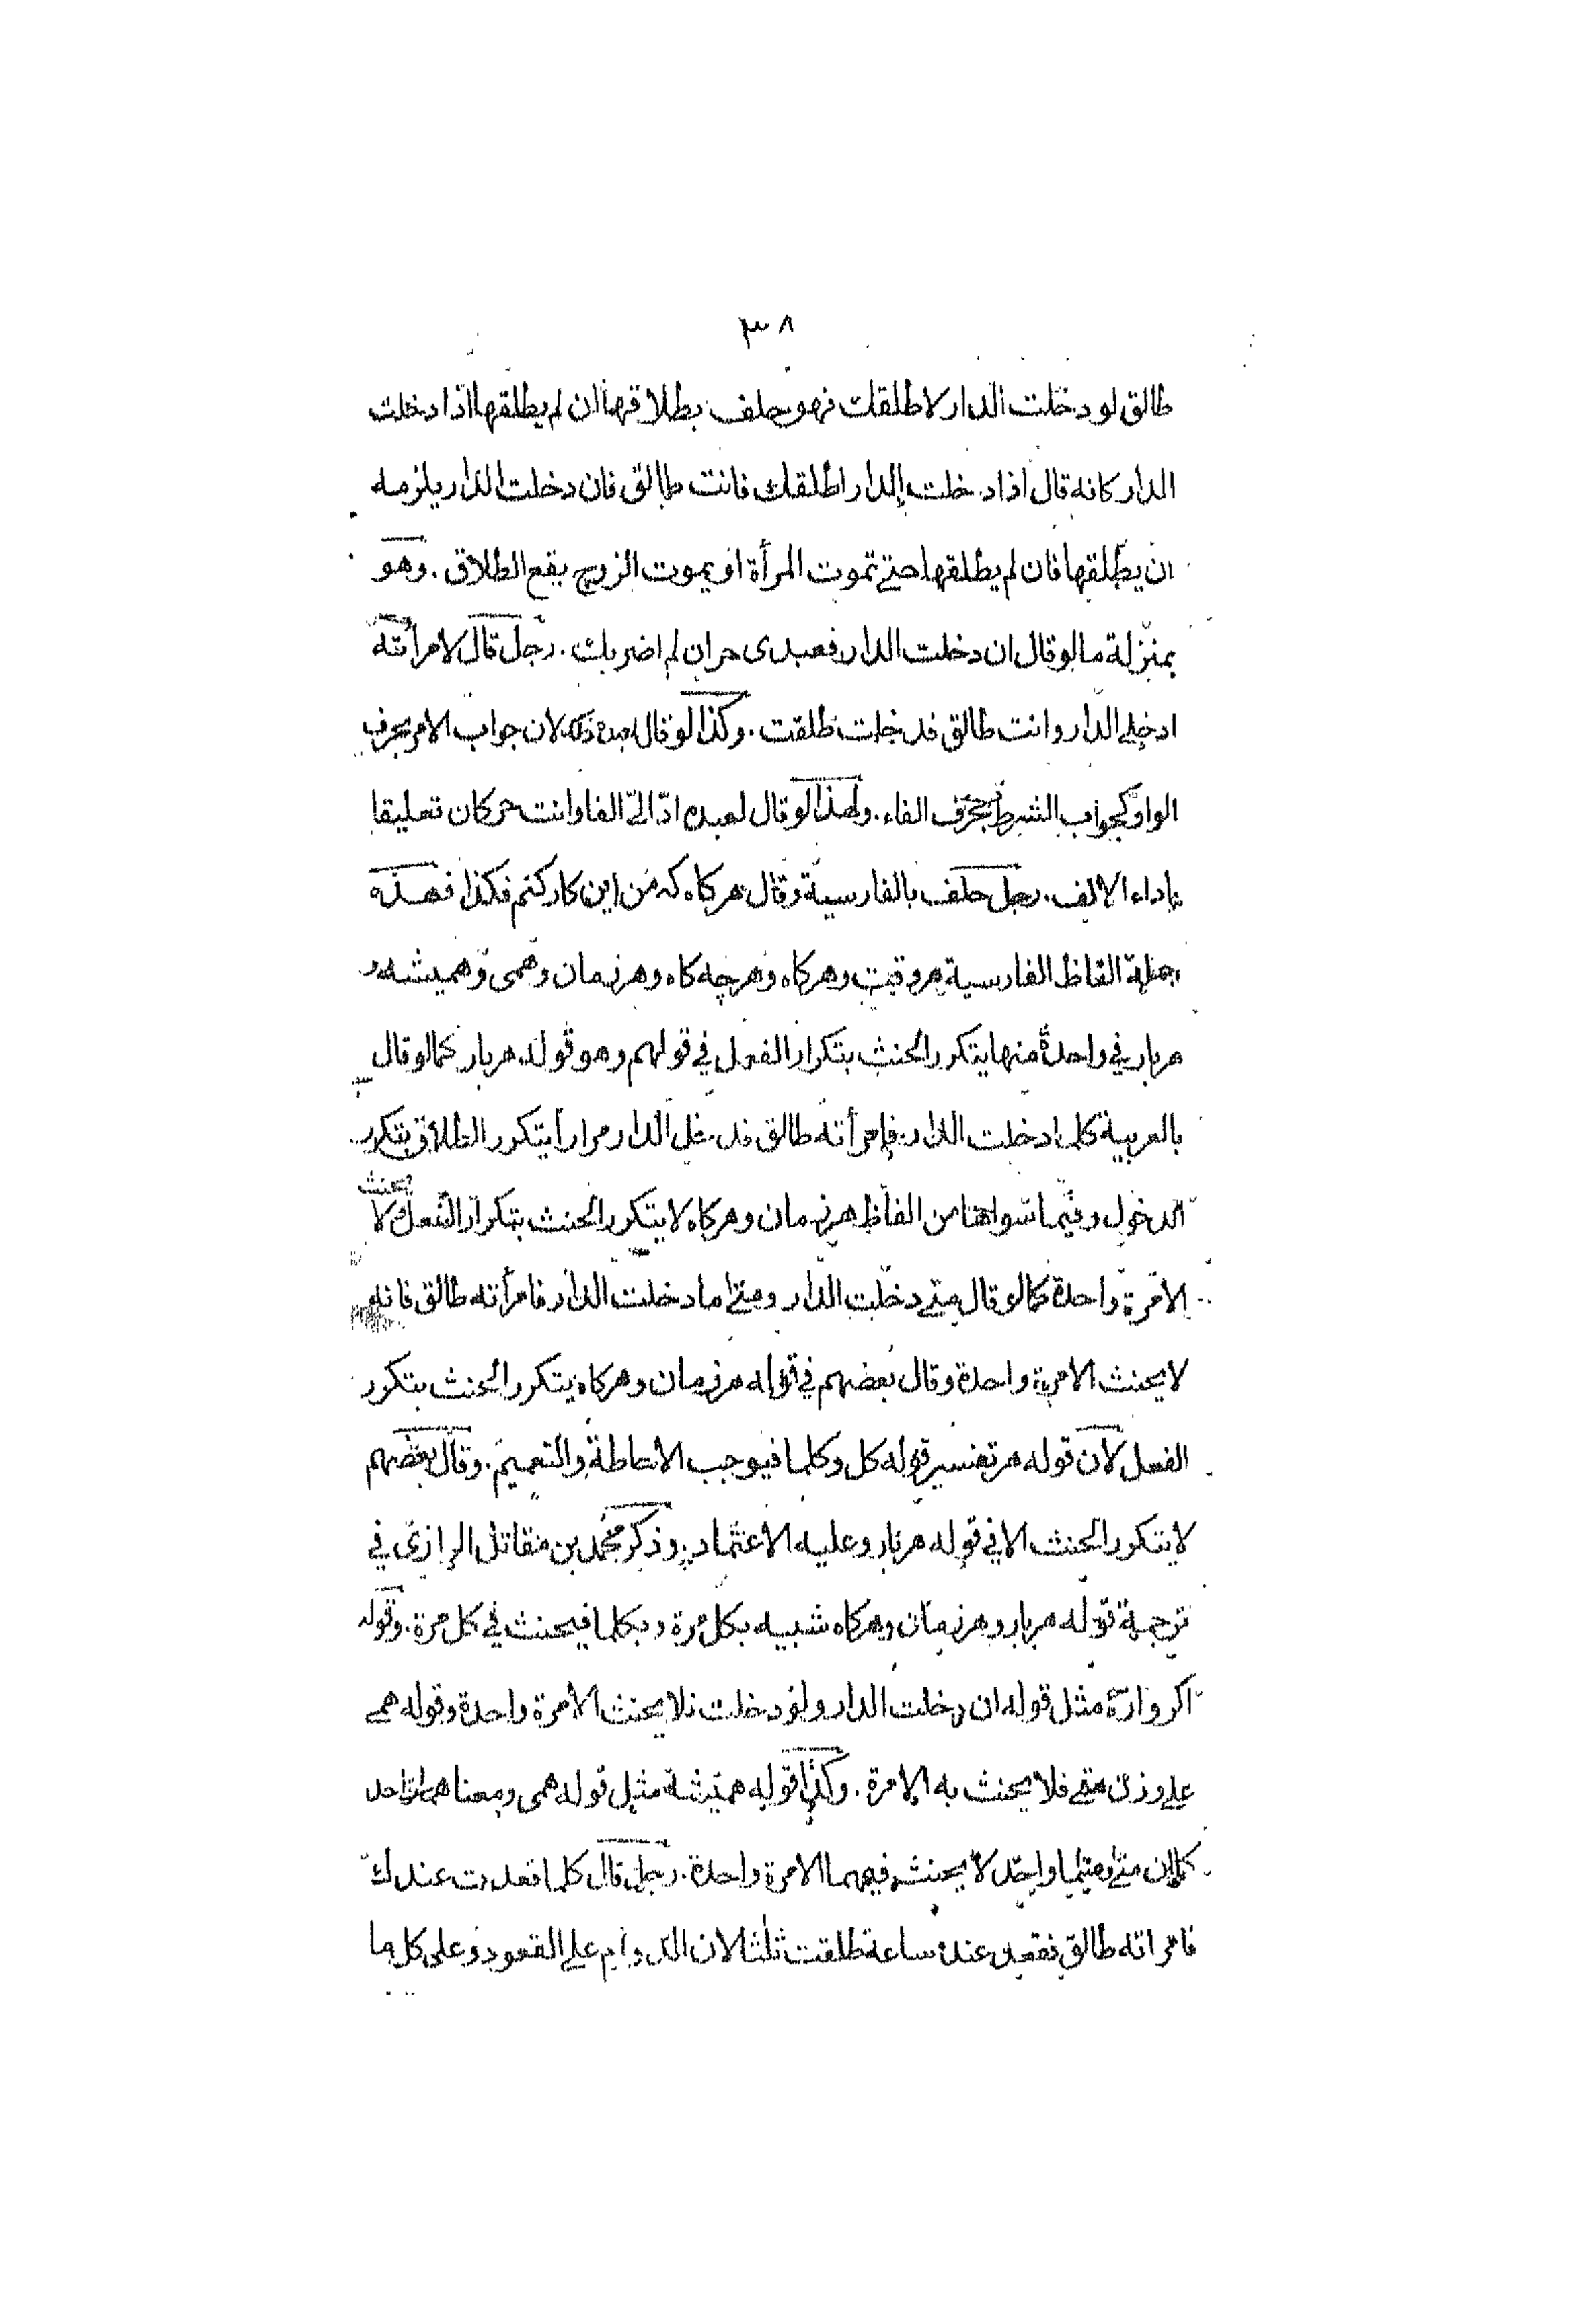 ٣٠٨
طالق لو دخلت الدار لا طلقك فهو حلف بطلاقها ان لم يطلقها اذا دخلت
الدار كانه قال اذا دخلت الدار اطلقك فانت طالق فان دخلت الدار يلزمه
ان يطلقها فان لم يطلقها حتى تموت المرأة او يموت الزوج يقع الطلاق . وهو
بمنزلة ما لو قال ان دخلت الدار فعبدى حر ان لم اضربك . رجل قال لامرأته
ادخلى الدار وانت طالق فدخلت طلقت . وكذا لو قال لعبده ذلك لان جواب الامر بحرف
الواو كجواب الشرط بحرف الفاء . ولهذا لو قال لعبده ادّ الىّ الفا وانت حر كان تعليقا
باداء الالف . رجل حلف بالفارسية وقال هر كاه كه من اين كار كنم فكذا فهذه
جملة الفاظ الفارسية هر وقت وهر كاه وهر چه كاه وهر زمان وهمى وهميشه و
هر بار فى واحدة منها يتكرر الحنث بتكرار الفعل فى قولهم وهو قوله هر بار كما لو قال
بالعربية كلما دخلت الدار فامرأته طالق فدخل الدار مرارا يتكرر الطلاق بتكرر
الدخول وفيما سواها من الفاظ هر زمان وهر كاه لا يتكرر الحنث بتكرار الفعل لا يحنث
الا مرة واحدة كما لو قال متى دخلت الدار ومتى ما دخلت الدار فامرأته طالق فانه
لا يحنث الا مرة واحدة وقال بعضهم فى قوله هر زمان وهر كاه يتكرر الحنث بتكرر
الفعل لان قوله هر تفسير قوله كل وكلما فيوجب الاحاطة والتعميم . وقال بعضهم
لا يتكرر الحنث الا فى قوله هر بار وعليه الاعتماد . وذكر محمد بن مقاتل الرازى فى
ترجمة قوله هر بار وهر زمان وهر كاه شبيه بكل مرة وبكلما فيحنث فى كل مرة . وقوله
اكر وارة مثل قوله ان دخلت الدار ولو دخلت فلا يحنث الا مرة واحدة وقوله همى
على وزن متى فلا يحنث به الا مرة . وكذا قوله هميشة مثل قوله همى ومعناهما واحد
كان متى ومتيما واحد لا يحنث فيهما الا مرة واحدة . رجل قال كلما قعدت عندك
فامراته طالق فقعد عنده ساعة طلقت ثلثا لان الدوام على القعود وعلى كل ما